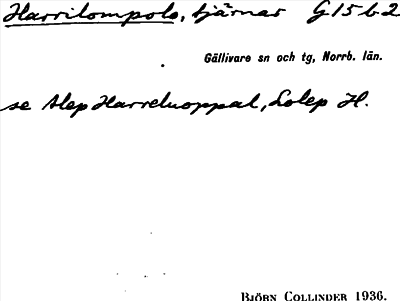 Harrilompolo, tjärnar G15b2
Gällivare sn och tg, Norrb. län.
se Alep Harreluoppal, Lolep H.
BJÖRN COLLINDER 1936.